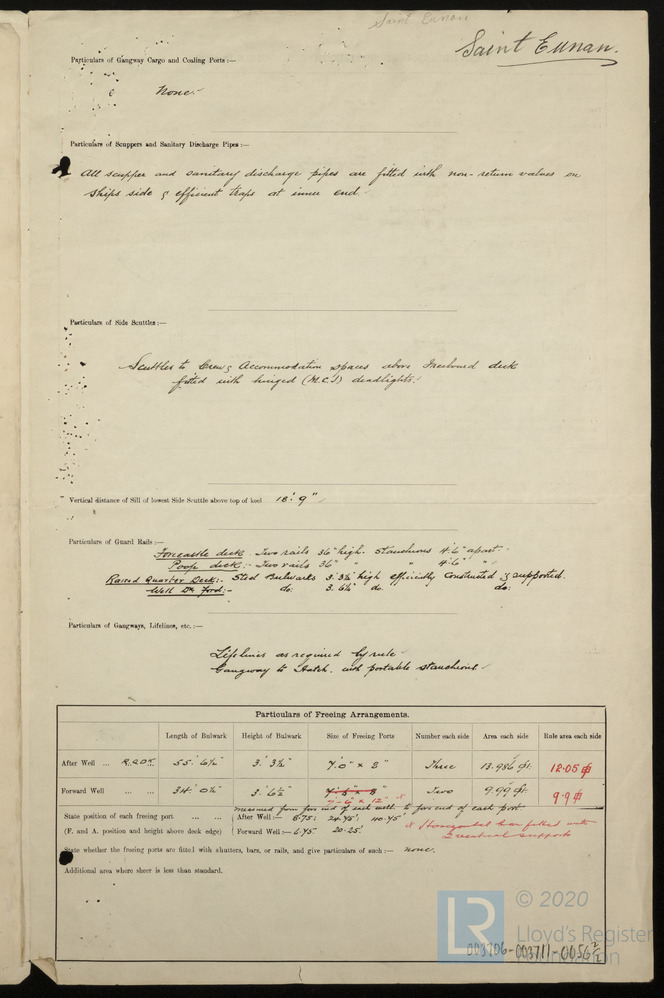 Saint Eunan
Saint Eunan.
Particulars of Gangway Cargo and Coaling Ports :—
None.
Particulars of Scuppers and Sanitary Discharge Pipes :—
All scupper and sanitary discharge pipes are fitted with non-return valves on
ships side & efficient traps at inner end.
Particulars of Side Scuttles :—
Scuttles to Crews Accommodation spaces above Freeboard deck
fitted with hinged (M.C.I) deadlights.
Vertical distance of Sill of lowest Side Scuttle above top of keel 18'. 9"
Particulars of Guard Rails :—
Forecastle deck. Two rails 36" high. Stanchions 4'.6" apart.
Poop deck :- Two rails 36" " " 4'.6" "
Raised Quarter Deck :- Steel Bulwarks 3'.3½" high efficiently constructed & supported.
Well Dk Ford :- do. 3'.6½" do. do.
Particulars of Gangways, Lifelines, etc. :—
Lifelines as required by rule
Gangway to Hatch. with portable stanchions
Particulars of Freeing Arrangements.
Length of Bulwark Height of Bulwark Size of Freeing Ports Number each side Area each side Rule area each side
After Well ... R.Q.DK. 55'. 6½" 3'. 3½" 7'.0" × 8" Three 13.986 ft. 12.05
Forward Well ... ... 34'. 0½" 3'. 6½" 7'.6" × 8" Two 9.99 ft. 9.9
7'-6" × 12" x
measured from fore end of each well to fore end of each port
State position of each freeing port ... ... After Well :— 6.75'; 24.75'; 40.75'
(F. and A. position and height above deck edge) Forward Well :— 6.75' 20.25'
x Horizontal bar fitted with
2 vertical supports
State whether the freeing ports are fitted with shutters, bars, or rails, and give particulars of such :— none.
Additional area where sheer is less than standard.
LR
© 2020
Lloyd's Register
Foundation
003706-003711-0056 2/2